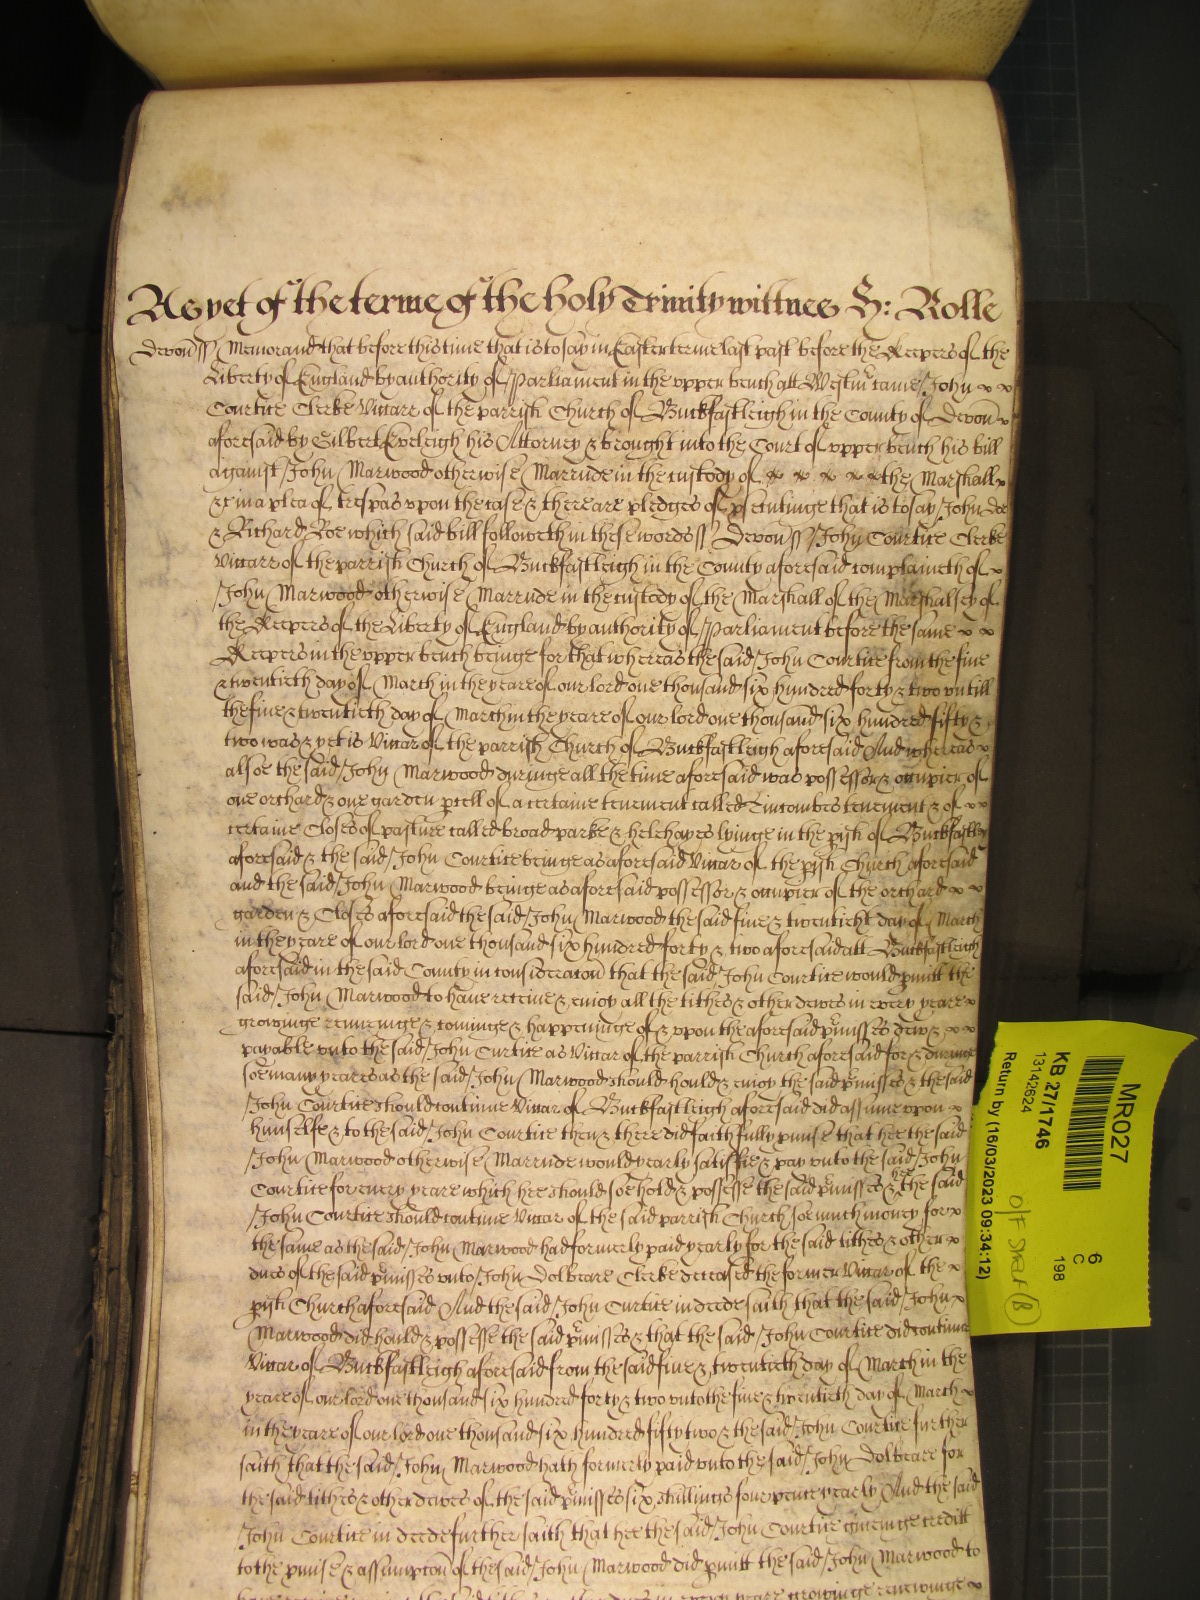 As yet of the terme of the holy Trinity wittnes H: Rolle
Devon ss Memorand that before this time that is to say in Easter terme last past before the Keepers of the
Liberty of England by authority of Parliament in the upper bench att Westmr came John x x
Courtice Clerke Viccar of the parrish Church of Buckfastleigh in the County of Devon x
aforesaid by Gilbert Eveleigh his Attorney & brought into the Court of upper bench his bill
against John Marwood otherwise Marrude in the custody of x x x x x the Marshall x
&c in a plea of trespas upon the case & there are pledges of psentinge that is to say John Doe
& Richard Roe which said bill followeth in these words ss Devon ss John Courtice Clerke
Viccar of the parrish Church of Buckfastleigh in the County aforesaid complaineth of x
John Marwood otherwise Marrude in the custody of the Marshall of the Marshalsey of
the Keepers of the Liberty of England by authority of Parliament before the same x x
Keepers in the upper bench beinge for that whereas the said John Courtice from the five
& twentieth day of March in the yeare of our lord one thousand six hundred forty & two untill
the five & twentieth day of March in the yeare of our lord one thousand six hundred fifty &
two was & yet is Viccar of the parrish Church of Buckfastleigh aforesaid And whereas x
alsoe the said John Marwood duringe all the time aforesaid was possessor & occupier of
one orchard & one garden pcell of a certaine tenement called Tincombes tenement & of x x
certaine Closes of pasture called broad parke & helehayes lyinge in the pish of Buckfastley
aforesaid & the said John Courtice beinge as aforesaid Viccar of the pish Church aforesaid
and the said John Marwood beinge as aforesaid possessor & occupier of the orchard x x
garden & Closes aforesaid the said John Marwood the said five & twentieht day of March
in the yeare of our lord one thousand six hundred forty & two aforesaid att Buckfastleigh
aforesaid in the said County in consideracon that the said John Courtice would pmitt the
said John Marwood to have receive & enjoy all the tithes & other dewes in every yeare x
growinge renueinge & cominge & happeninge of & upon the aforesaid pmisses dew & x x
payable unto the said John Curtice as Viccar of the parrish Church aforesaid for & duringe
soe many yeares as the said John Marwood should hould & enjoy the said pmisses & the said
John Courtice should continue Viccar of Buckfastleigh aforesaid did assume upon x
himselfe & to the said John Courtice then & there did faithfully pmise that hee the said
John Marwood otherwise Marrude would yearly satisfie & pay unto the said John
Courtice for every yeare which hee should soe hold & possesse the said pmisses & hee the said
John Courtice should continue Viccar of the said parrish Church soe much money for x
the same as the said John Marwood had formerly paid yearly for the said tithes & other x
dues of the said pmisses unto John Dolbeare Clerke deceased the former Viccar of the x
pish Church aforesaid And the said John Curtice in deede saith that the said John x
Marwood did hould & possesse the said pmisses & that the said John Courtice did continue
Viccar of Buckfastleigh aforesaid from the said five & twentieth day of March in the
yeare of our lord one thousand six hundred forty & two unto the five & twentieth day of March x
in the yeare of our lord one thousand six hundred fifty two & the said John Courtice further
saith that the said John Marwood hath formerly paid unto the said John Dolbeare for
the said tithes & other dewes of the said pmisses six shillings fowrpence yearly And the said
John Courtice in deede further saith that hee the said John Courtice giveinge creditt
to the pmise & assumpcon of the said John Marwood did pmitt the said John Marwood to
MR027
6
C
198
KB 27/1746
13142624
Return by (16/03/2023 09:34:12)